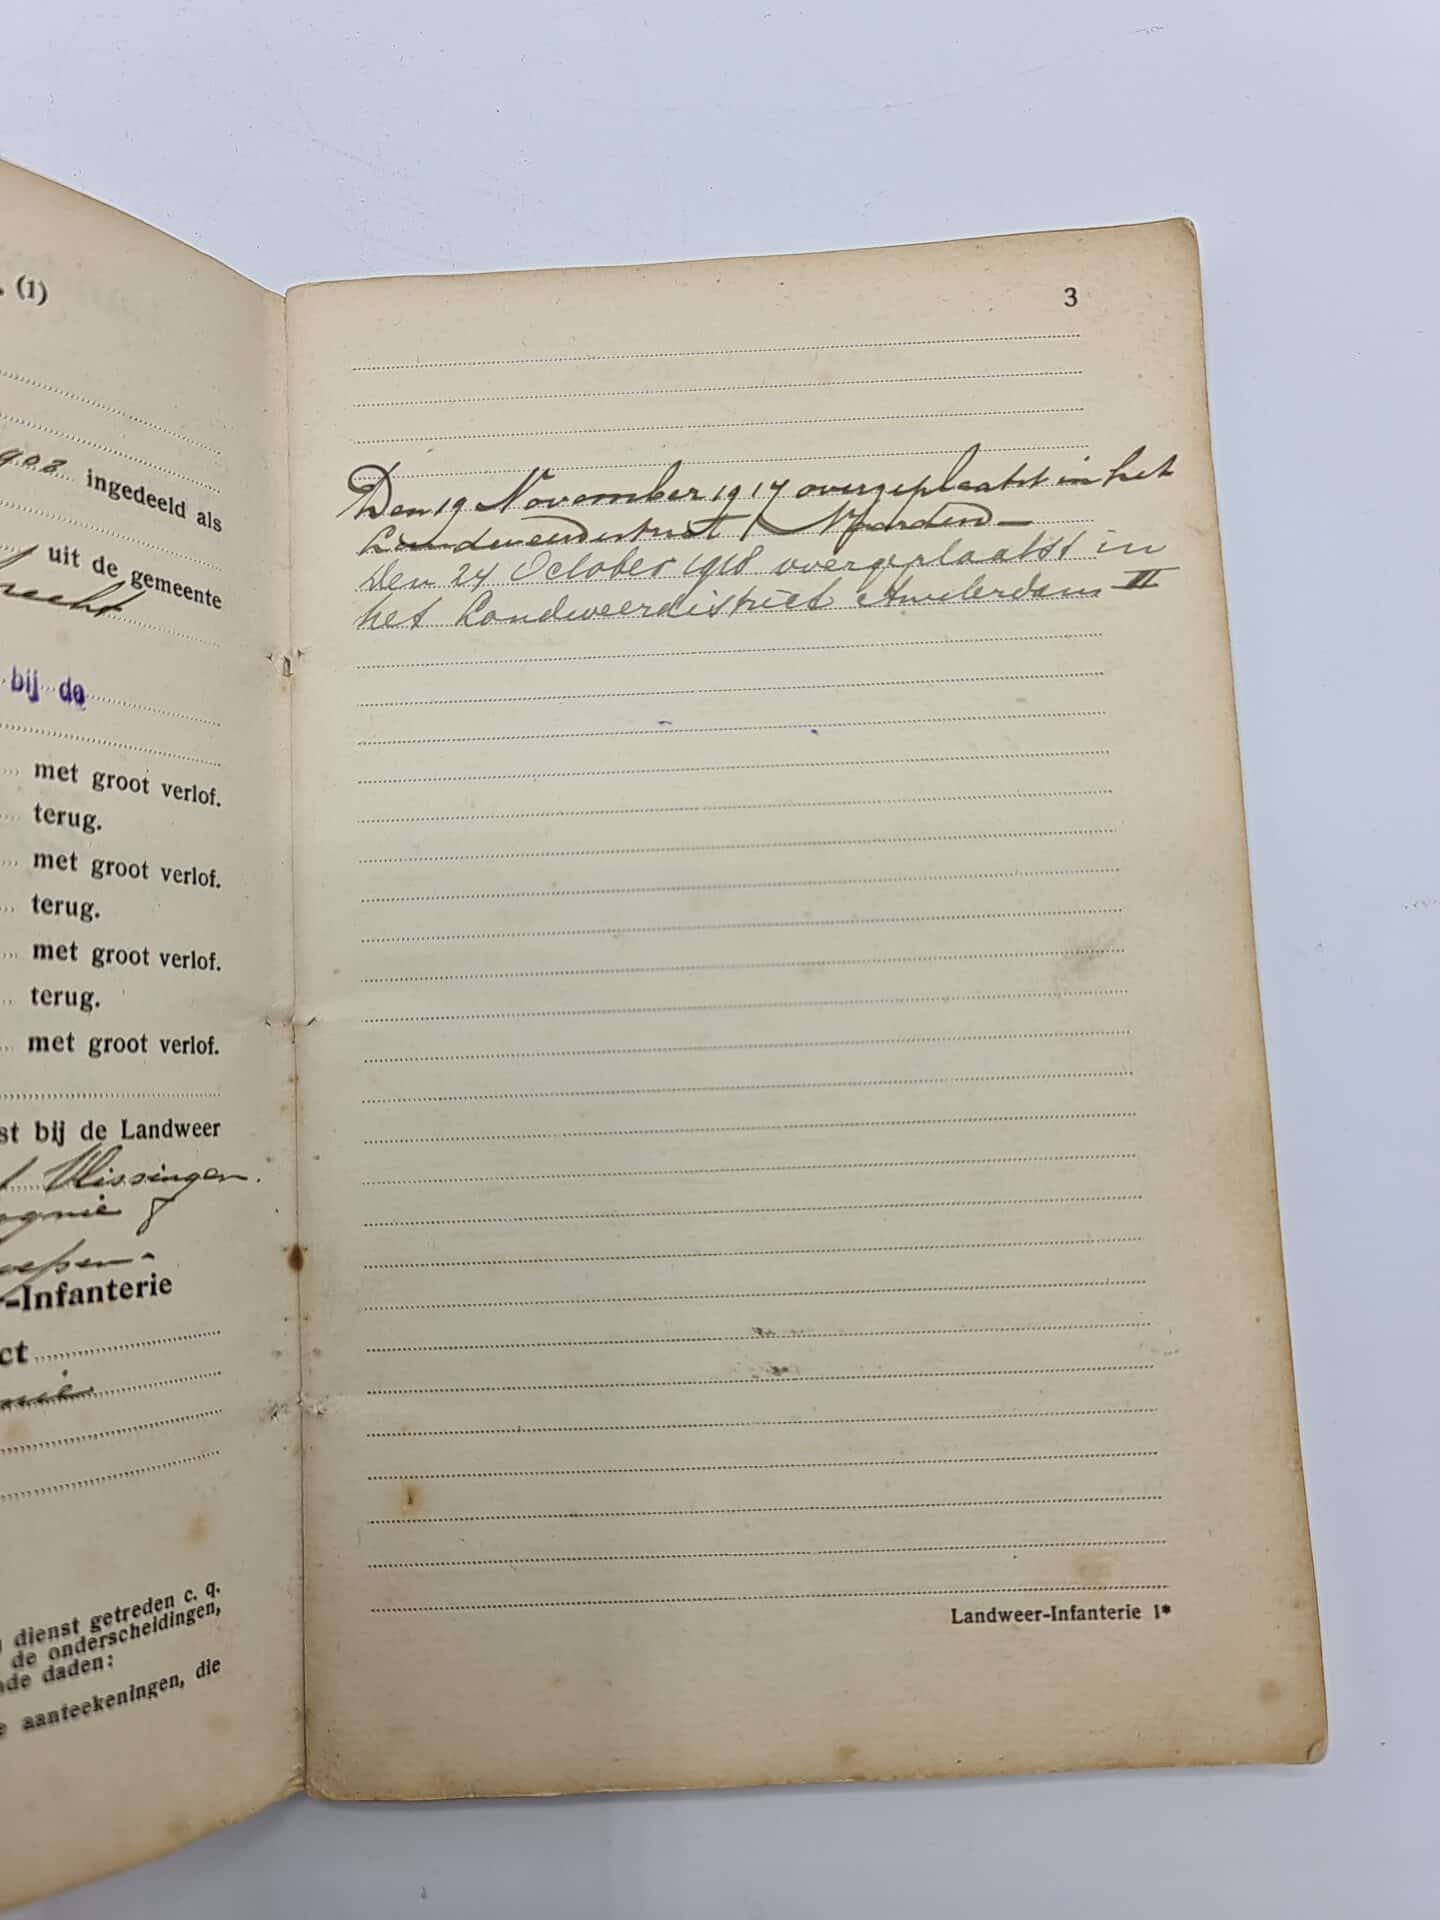 . (1)
ingedeeld als
uit de gemeente
bij de
met groot verlof.
terug.
met groot verlof.
terug.
met groot verlof.
terug.
met groot verlof.
st bij de Landweer
Vlissingen.
-Infanterie
ct
dienst getreden c. q.
de onderscheidingen,
de daden:
aanteekeningen, die
3
Den 19 November 1917 overgeplaatst in het
Landweerdistrict Naarden
Den 24 October 1918 overgeplaatst in
het Landweerdistrict Amsterdam II
Landweer-Infanterie 1*